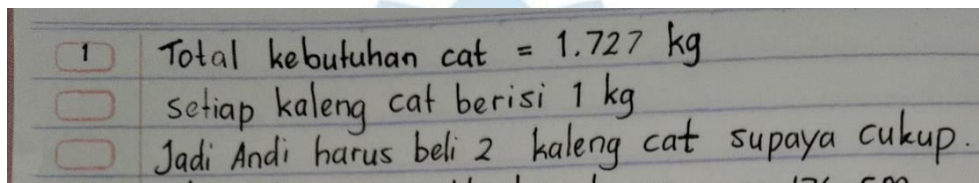 1 Total kebutuhan cat = 1.727 kg
setiap kaleng cat berisi 1 kg
Jadi Andi harus beli 2 kaleng cat supaya cukup.